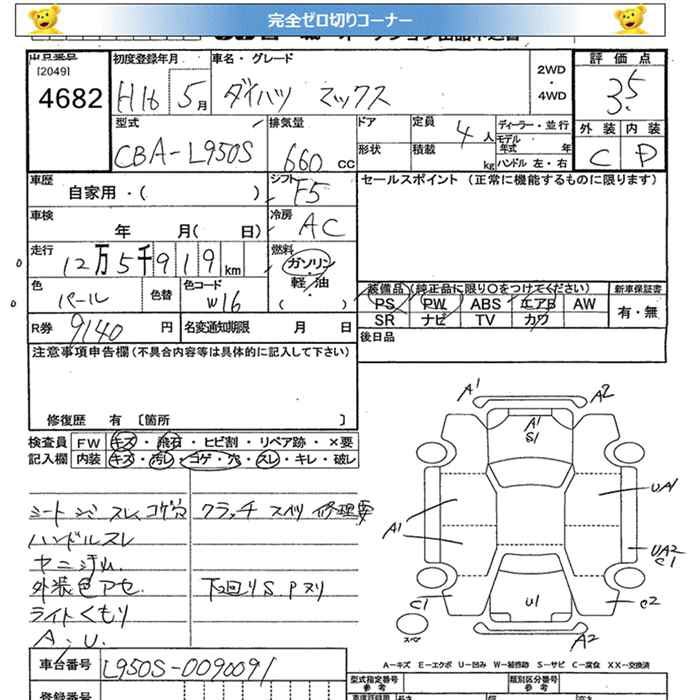 完全ゼロ切りコーナー
出品番号 初度登録年月 車名・グレード 2WD 評価点
[2049]
4682 H16 5月 ダイハツ マックス ・ 4WD 3.5
型式 排気量 ドア 定員 4人 ディーラー・並行 外装 内装
CBA-L950S 660 CC 形状 積載 kg モデル年式 年 C D
ハンドル 左・右
車歴 自家用・( ) シフト F5 セールスポイント (正常に機能するものに限ります)
車検 年 月( 日) 冷房 AC
走行 12万5千919km 燃料 ガソリン・軽油 ( )
色 パール 色替 色コード W16 装備品 (純正品に限り○をつけてください) 新車保証書
PS PW ABS エアB AW 有・無
SR ナビ TV カワ
R券 9140円 名変通知期限 月 日 後日品
注意事項申告欄 (不具合内容等は具体的に記入して下さい)
修復歴 有 〔箇所 〕
検査員 FW キズ・飛石・ヒビ割・リペア跡・×要
記入欄 内装 キズ・汚レ・コゲ・穴・スレ・キレ・破レ
シート シミ スレ コゲ穴 クラッチ スベリ 修理要
ハンドルスレ
ヤニ汚レ
外装色アセ. 下回りS.Pヌリ
ライトくもり
A.U.
A1 A2
A1
S1
A1 UA1
UA2
C1
C1 U1 C2
スペア A2
A-キズ E-エクボ U-凹み W-補修跡 S-サビ C-腐食 XX-交換済
車台番号 L950S-0090091 型式指定番号 参考 類別区分番号 参考
登録番号